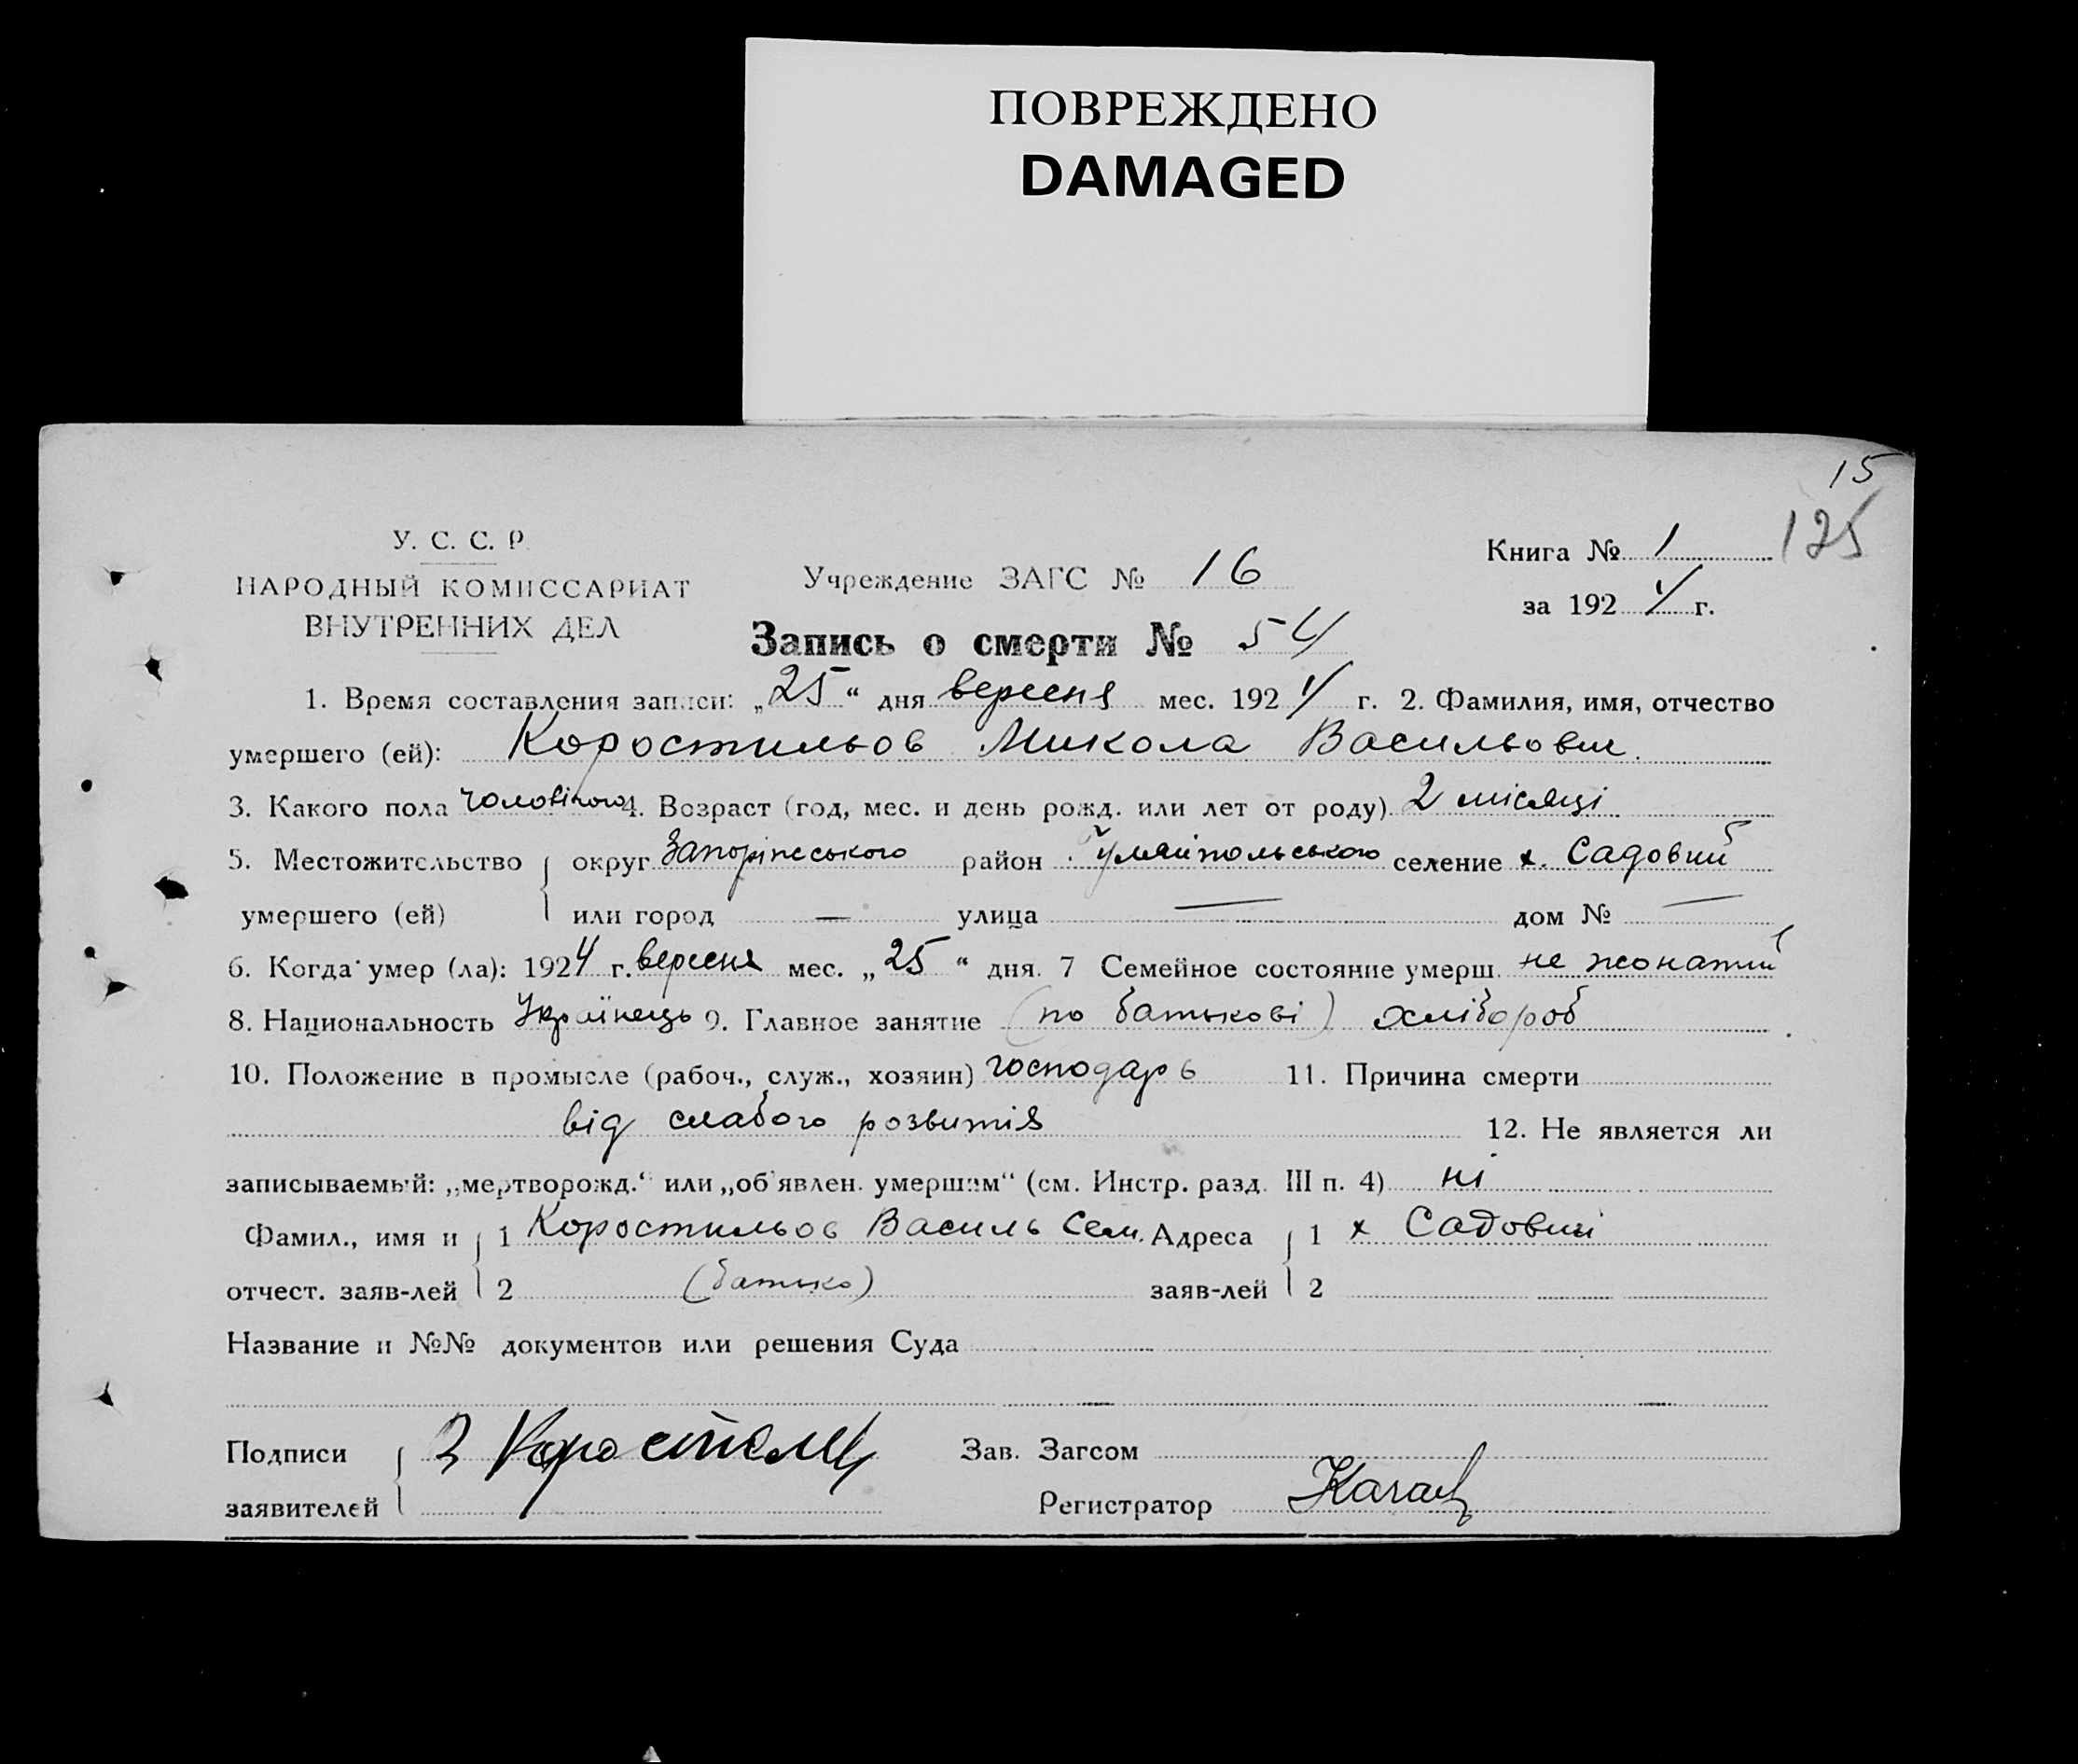 ПОВРЕЖДЕНО
DAMAGED
15
125
У. С. С. Р.
НАРОДНЫЙ КОМИССАРИАТ
ВНУТРЕННИХ ДЕЛ
Учреждение ЗАГС № 16
Книга № 1
за 1924 г.
Запись о смерти № 54
1. Время составления записи: „25“ дня вересня мес. 1924 г. 2. Фамилия, имя, отчество
умершего (ей): Коростильов Микола Васильович.
3. Какого пола чоловічого 4. Возраст (год, мес. и день рожд. или лет от роду) 2 місяці
5. Местожительство округ Запоріжського район Гуляйпольського селение х. Садовий
умершего (ей) или город — улица — дом № —
6. Когда умер (ла): 1924 г. вересня мес. „25“ дня. 7 Семейное состояние умерш. не жонатий
8. Национальность Українець 9. Главное занятие (по батькові) хлібороб
10. Положение в промысле (рабоч., служ., хозяин) господарь 11. Причина смерти
від слабого розвитія 12. Не является ли
записываемый: „мертворожд.“ или „об'явлен. умершим“ (см. Инстр. разд. III п. 4) ні
Фамил., имя и 1 Коростильов Василь Сем. Адреса 1 х Садовий
отчест. заяв-лей 2 (батько) заяв-лей 2
Название и №№ документов или решения Суда
Подписи Зав. Загсом
заявителей Регистратор